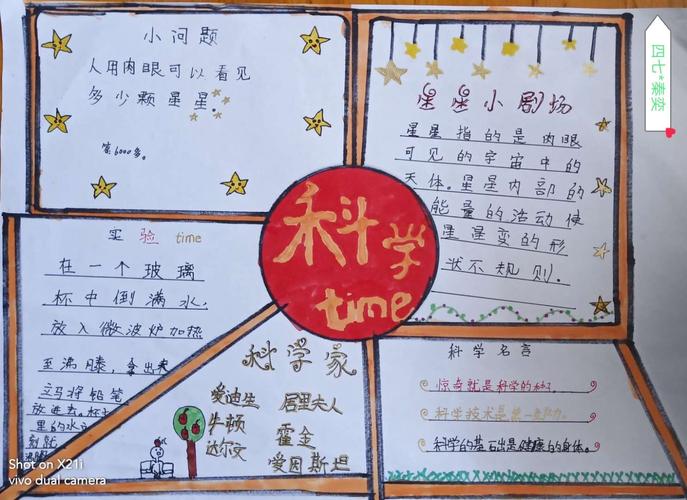 小问题
人用肉眼可以看见
多少颗星星。
答6000多。
星星小剧场
星星指的是肉眼
可见的宇宙中的
天体。星星内部的
能量的活动使
星星变的形
状不规则。
四七*秦奕
科学
time
实验 time
在一个玻璃
杯中倒满水,
放入微波炉加热
至沸腾,拿出来
立马将铅笔
放进去。杯
里的水
科学家
爱迪生 居里夫人
牛顿 霍金
达尔文 爱因斯坦
科学名言
惊奇就是科学的
科学技术是第一
科学的基石出是健康的身体。
Shot on X21i
vivo dual camera